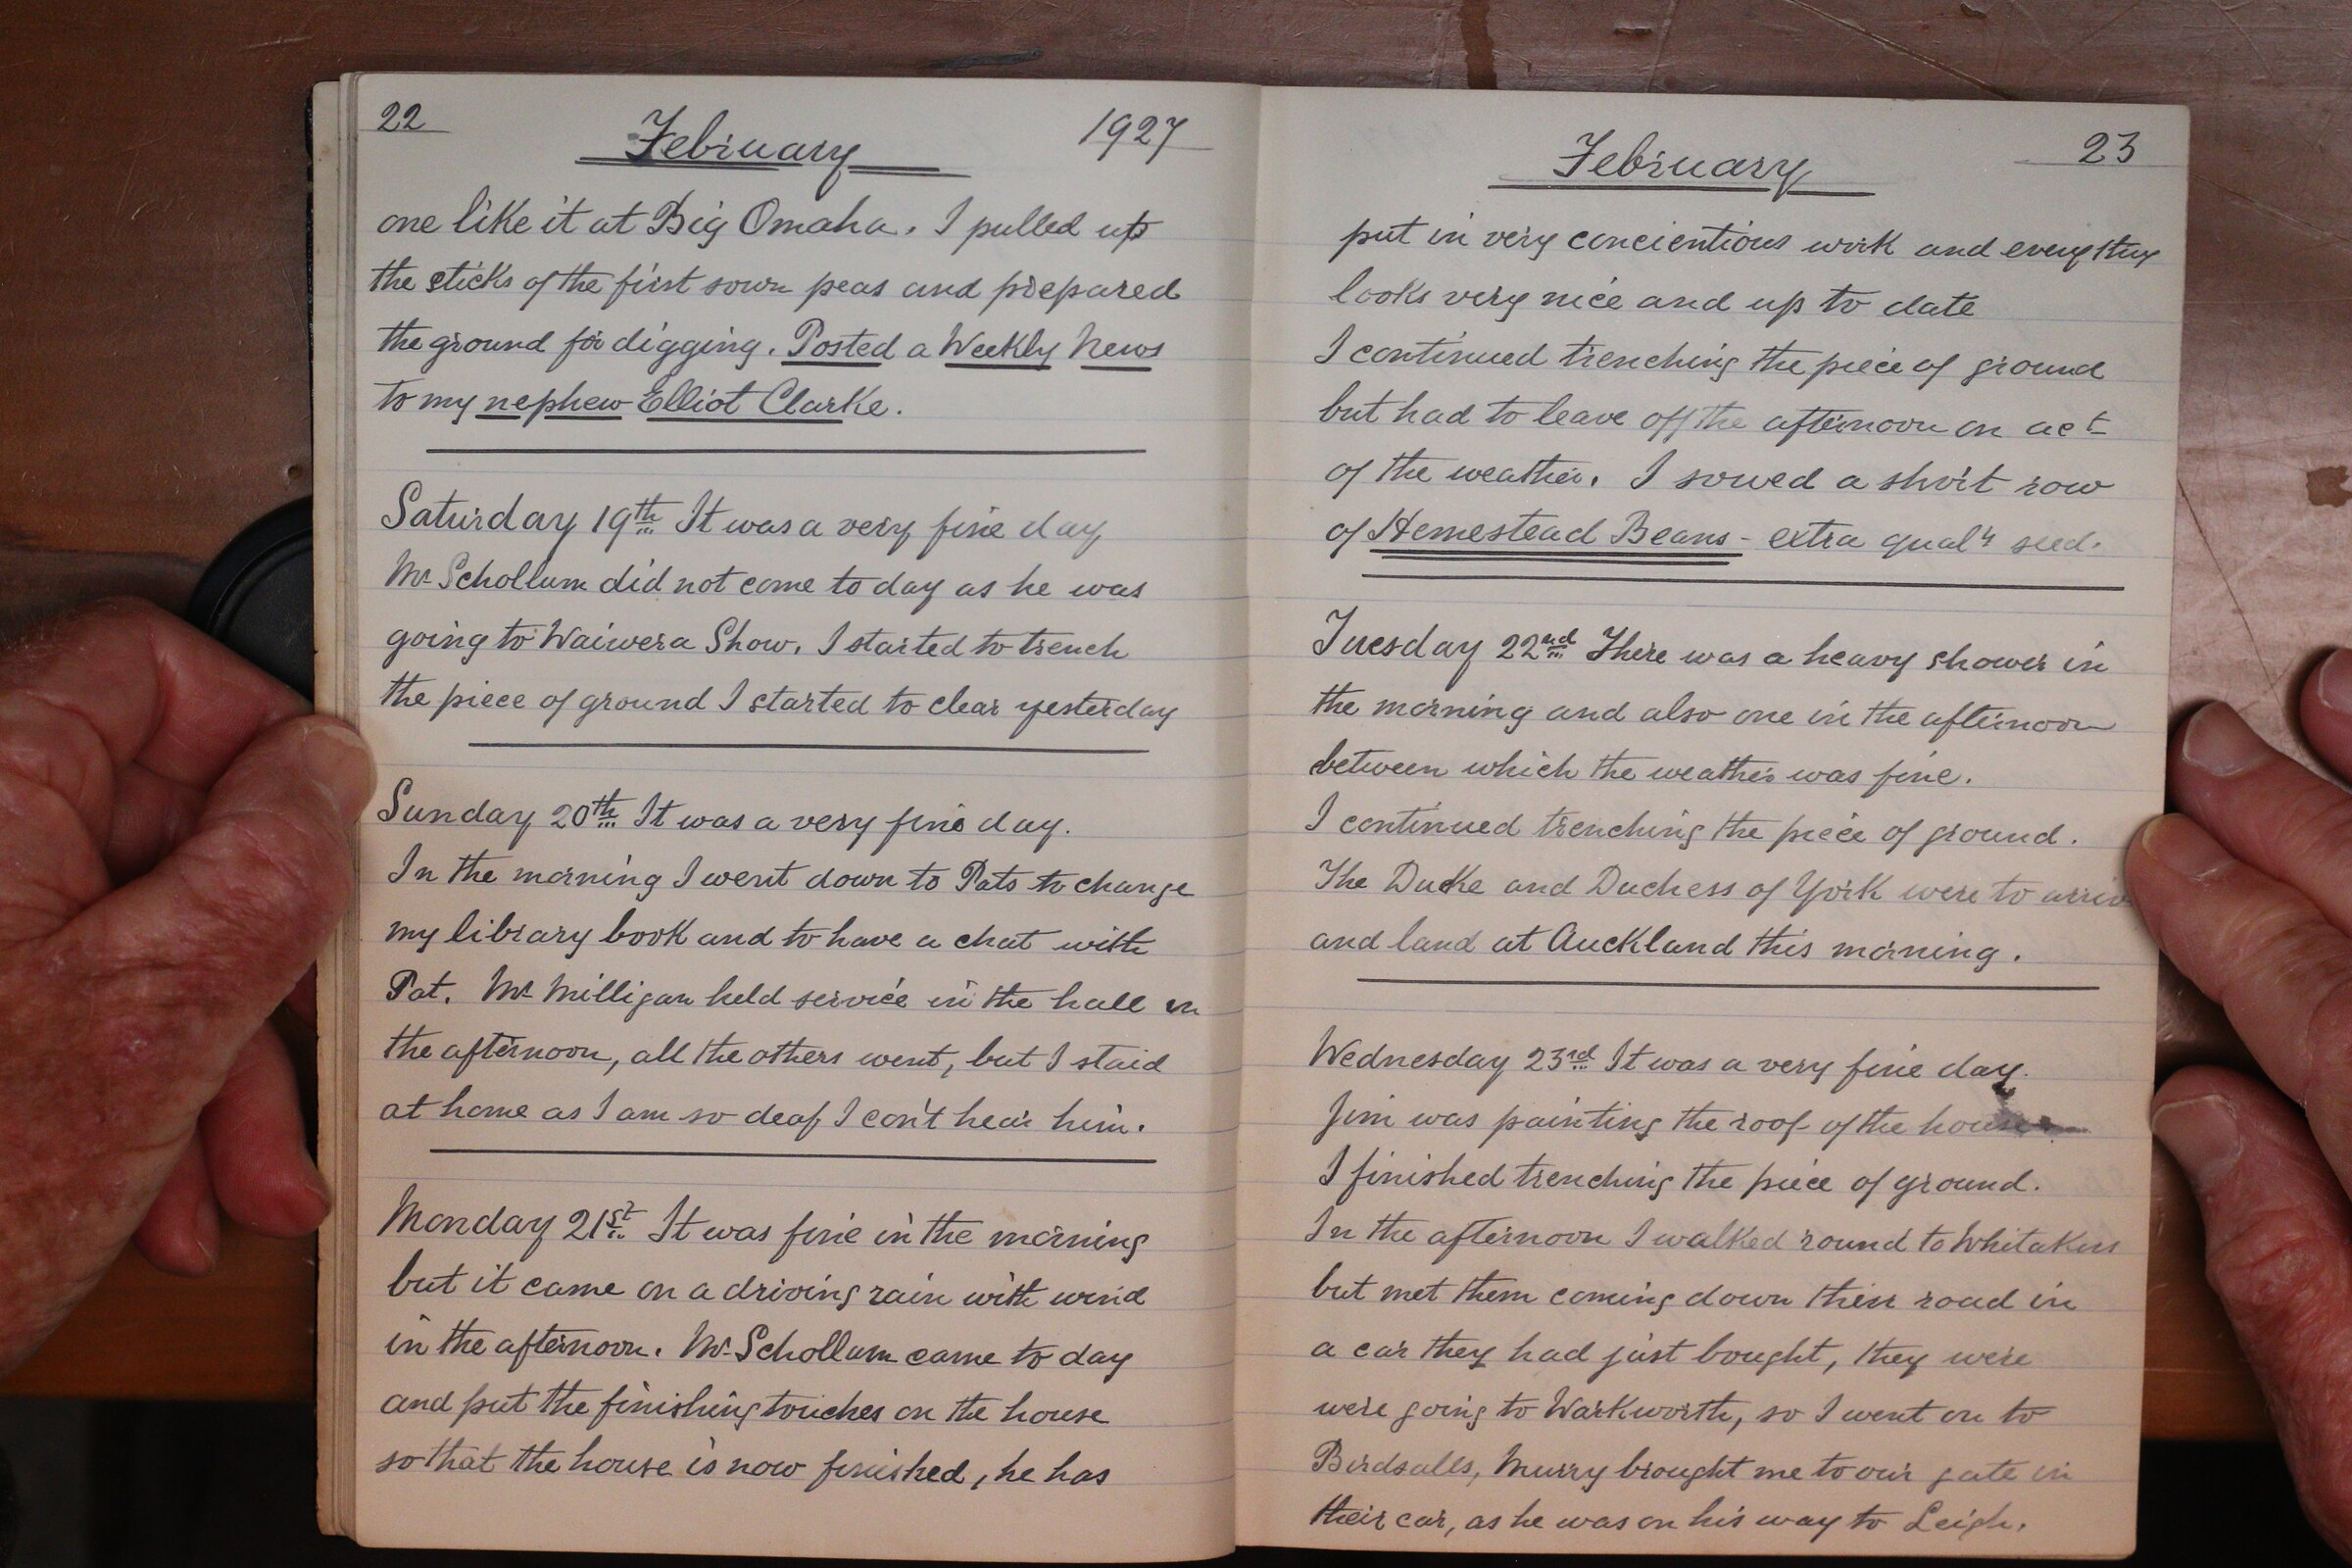 22
February
1927
one like it at Big Omaha. I pulled up
the sticks of the first sown peas and prepared
the ground for digging. Posted a Weekly News
to my nephew Elliot Clarke.
Saturday 19th It was a very fine day
Mr Schollum did not come to day as he was
going to Waiwera Show. I started to trench
the piece of ground I started to clear yesterday
Sunday 20th It was a very fine day.
In the morning I went down to Pats to change
my library book and to have a chat with
Pat. Mr Milligan held service in the hall in
the afternoon, all the others went, but I staid
at home as I am so deaf I can't hear him.
Monday 21st It was fine in the morning
but it came on a driving rain with wind
in the afternoon. Mr Schollum came to day
and put the finishing touches on the house
so that the house is now finished, he has
February
23
put in very concientious work and everything
looks very nice and up to date
I continued trenching the piece of ground
but had to leave off the afternoon on act
of the weather. I sowed a short row
of Hemestead Beans - extra qualy seed.
Tuesday 22nd There was a heavy shower in
the morning and also one in the afternoon
between which the weather was fine.
I continued trenching the piece of ground.
The Duke and Duchess of York were to arriv
and land at Auckland this morning.
Wednesday 23rd It was a very fine day.
Jim was painting the roof of the house
I finished trenching the piece of ground.
In the afternoon I walked round to Whitakers
but met them coming down their road in
a car they had just bought, they were
were going to Warkworth, so I went on to
Birdsalls, Murry brought me to our gate in
their car, as he was on his way to Leigh.